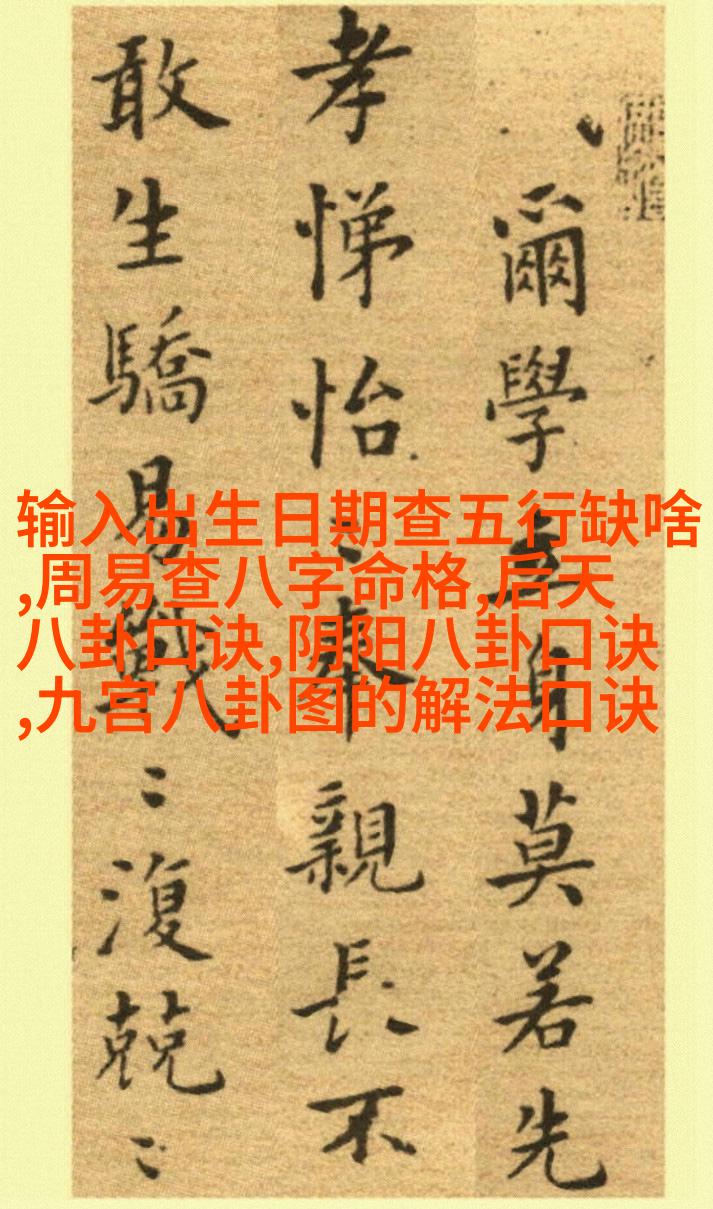 爾學立身莫若先
孝悌怡〻奉親長不
敢生驕易戰〻復兢〻
输入出生日期查五行缺啥
,周易查八字命格,后天
八卦口诀,阴阳八卦口诀
,九宫八卦图的解法口诀